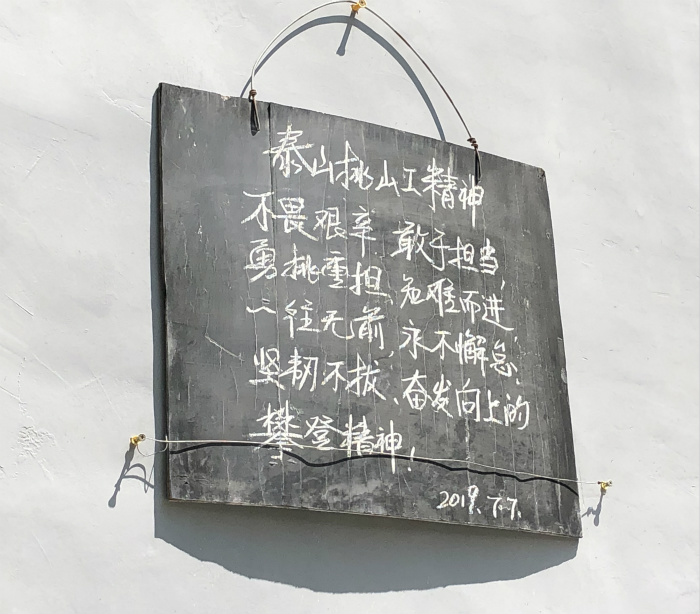 泰山挑山工精神
不畏艰辛 敢于担当,
勇挑重担、危难而进,
一往无前、永不懈怠、
坚韧不拔、奋发向上的
攀登精神!
2019.7.7.